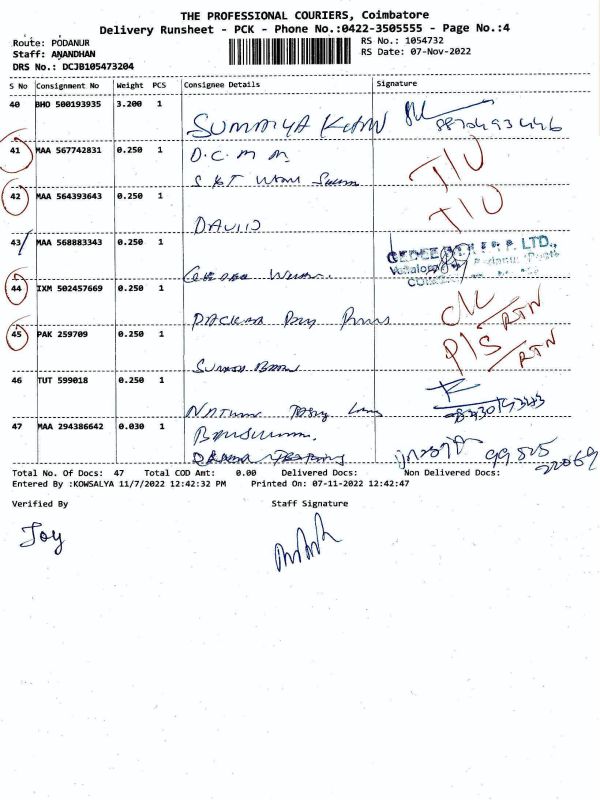 THE PROFESSIONAL COURIERS, Coimbatore
Delivery Runsheet - PCK - Phone No.:0422-3505555 - Page No.:4
Route: PODANUR
RS No.: 1054732
Staff: ANANDHAN
RS Date: 07-Nov-2022
DRS No.: DCJB105473204
S No Consignment No Weight PCS Consignee Details Signature
40 BHO 500193935 3.200 1
SUMAIYA KHAN
41 MAA 567742831 0.250 1
D.C.M.M T/U
42 MAA 564393643 0.250 1
T/U
DAVID
43 MAA 568883343 0.250 1
LTD.,
44 IXM 502457669 0.250 1
RTN
45 PAK 259709 0.250 1
P/S RTN
46 TUT 599018 0.250 1
47 MAA 294386642 0.030 1
Total No. Of Docs: 47 Total COD Amt: 0.00 Delivered Docs: Non Delivered Docs:
Entered By :KOWSALYA 11/7/2022 12:42:32 PM Printed On: 07-11-2022 12:42:47
Verified By Staff Signature
Joy